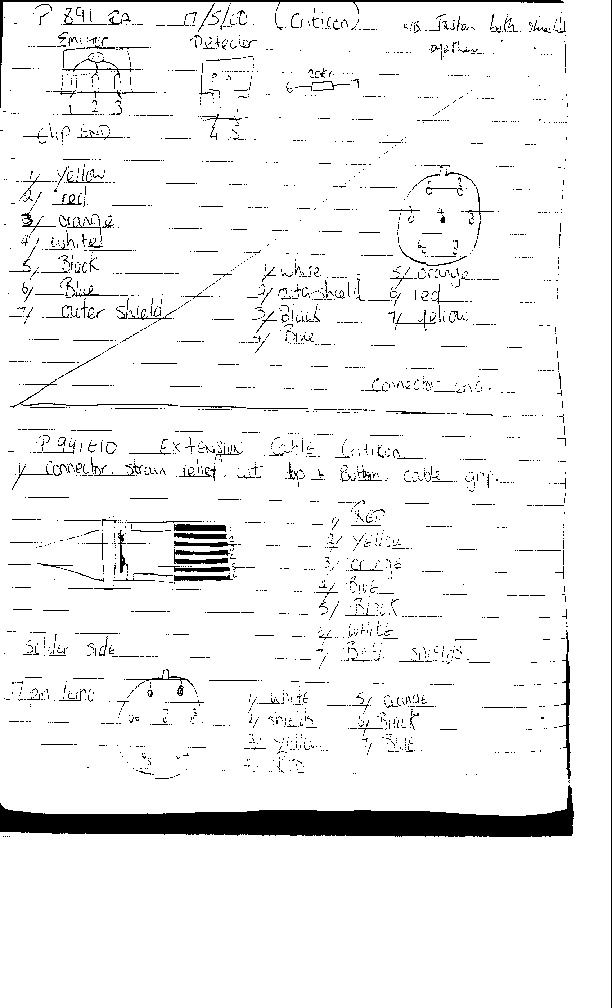 P 891 RA 17/5/00 (Criticon)
Emitter Detector
both shield
6 7
1 2 3 4 5
Clip END
1/ Yellow
2/ red
3/ orange
4/ white
5/ Black
6/ Blue
7/ outer shield
4
1/ white 5/ orange
2/ outer shield 6/ red
3/ Black 7/ yellow
4/ Blue
connector end.
P 991E10 Extension Cable Criticon
1/ connector. strain relief. cut top & Bottom. cable grip.
1/ RED
2/ Yellow
3/ orange
4/ Blue
5/ Black
6/ white
7/ Both shields.
Solder side
7 pin
1/ white 5/ orange
2/ shields 6/ Black
3/ Yellow 7/ Blue
4/ RED